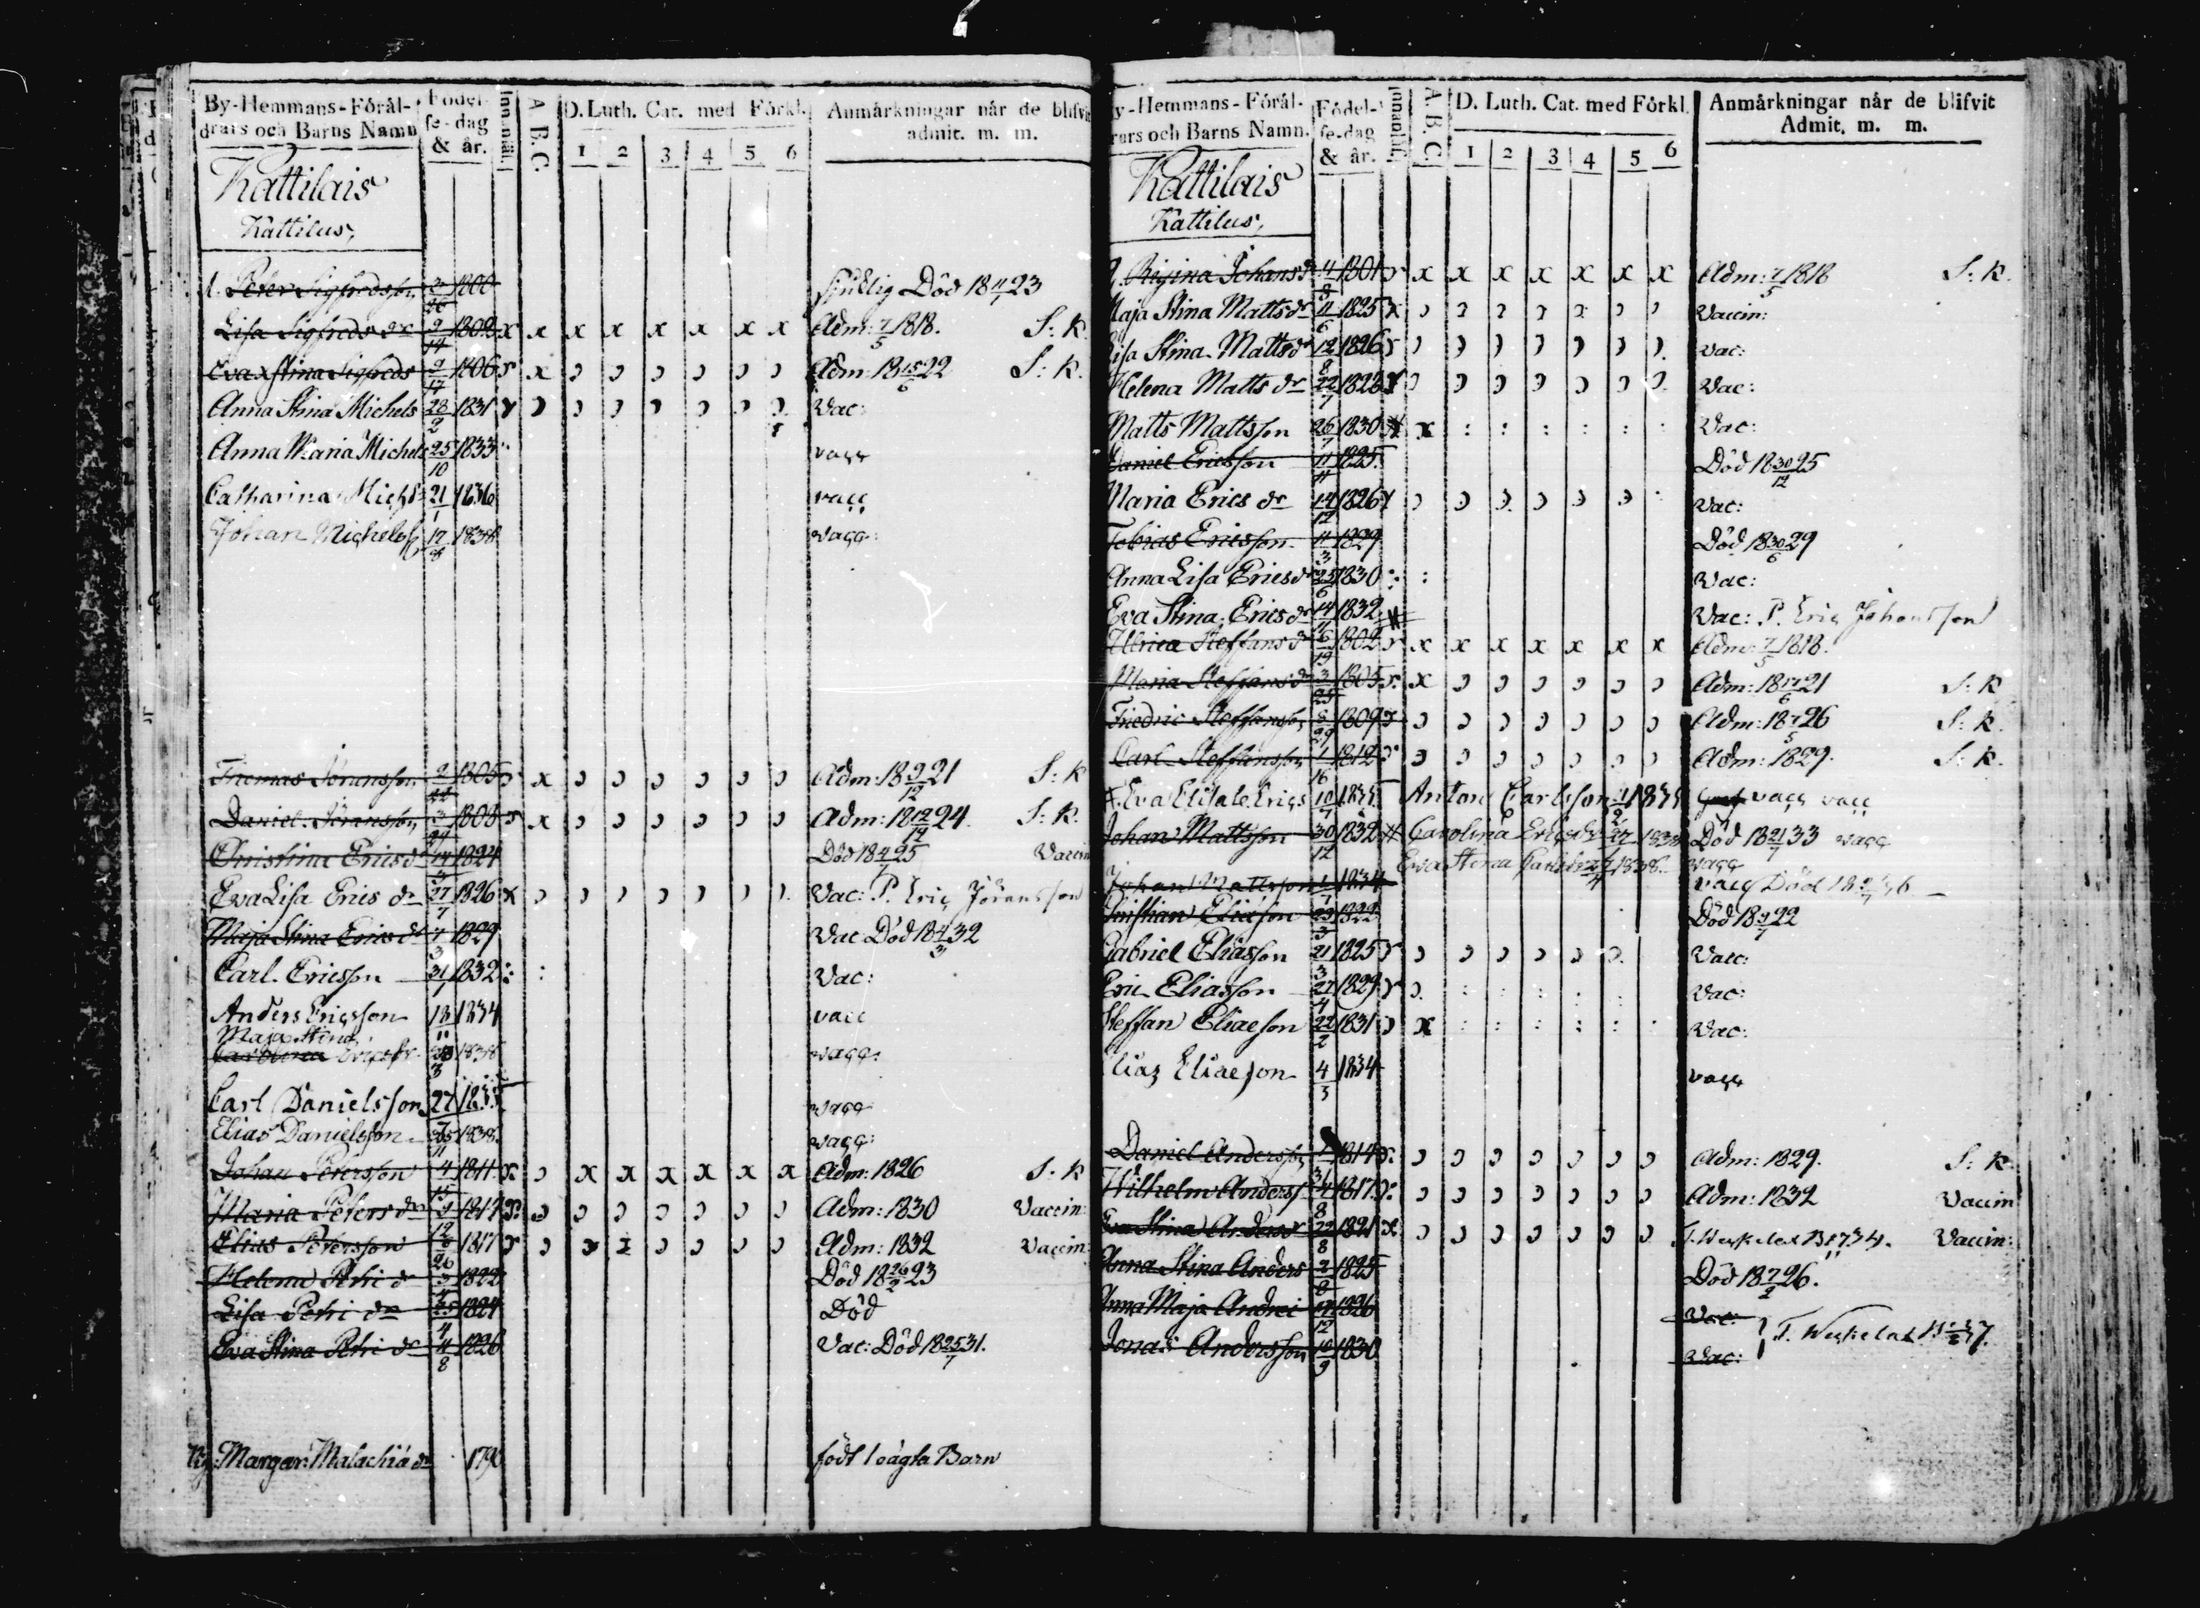 By-Hemmans-Föräl-
drars och Barns Namn
Födel-
se-dag
& år.
A. B. C.
D. Luth. Cat. med Förkl.
1 2 3 4 5 6
Anmårkningar når de blifvit
admit. m. m.
Kattilais
Kattilus,
Peter Sigfredsson 1800 Sjuklig Död 18 23
Lisa Sigfreds dr 1802 x x x x x x x x Adm: 7/5 1818. S: K.
Eva Stina Sigfreds 9/17 1806 x Adm: 18 15/6 22 S: K.
Anna Stina Michels 28/2 1831 Vac:
Anna Maria Michels 25/10 1833 vacc
Catharina Michs 21/1 1836 vacc
Johan Michelss 17 1838 vacc:
Thomas Göransson 1805 x Adm: 18 9/12 21 S: K
Daniel Göransson 1808 x Adm: 18 12 24. S: K.
Christina Erics dr 1824 Död 18 25 Vaccin
Eva Lisa Erics dr 27/7 1826 x Vac: P. Eric Göransson
Maja Stina Erics dr 1829 Vac Död 18 4/3 32
Carl Ericsson 31/1 1832 Vac:
Anders Ericsson 13/11 1834 vacc
Maja Stina
Carolina Ericsdr 1838 vacc:
Carl Danielsson 27 1835 vacc
Elias Danielsson 1838. vacc:
Johan Petersson 4 1811 x x x x x x x Adm: 1826 S: K
Maria Peters dr Adm: 1830 Vaccin:
Elias Petersson 1817 Adm: 1832 Vaccin:
Helena Petri dr 1822 Död 18 26/2 23
Lisa Petri dr 25/4 1824 Död
Eva Stina Petri dr 4/8 1826 Vac: Död 18 25/7 31.
Margar: Malachiä dr 179 födt 1 oägta Barn
By-Hemmans-Föräl-
drars och Barns Namn.
Födel-
se-dag
& år.
A. B. C.
D. Luth. Cat. med Förkl.
1 2 3 4 5 6
Anmårkningar når de blifvit
Admit. m. m.
Kattilais
Kattilus,
Regina Johans dr 4/8 1801 x x x x x x x Adm: 7/5 1818 S: K.
Maja Stina Matts dr 11/6 1825 x Vaccin:
Lisa Stina Matts dr 12/8 1826 Vac:
Helena Matts dr 22/7 1828 Vac:
Matts Mattsson 26/7 1830 x Vac:
Daniel Ericsson 11/11 1825. Död 18 30/12 25
Maria Erics dr 14/12 1826 Vac:
Tobias Ericsson 11/3 1829 Död 18 30/6 29
Anna Lisa Erics dr 25/6 1830 Vac:
Eva Stina Erics dr 14/11 1832 Vac: P. Eric Johansson
Ulrica Steffans dr 6/19 1802 x x x x x x x Adm: 7/5 1818.
Maria Steffans dr 3/25 1805 x Adm: 18 17/6 21 S: K
Fredric Steffansson 8/29 1809 Adm: 18 7/5 26 S: K.
Carl Steffansson 1/16 1812 Adm: 1829. S: K.
Eva Elisab. Erics 10/7 1835 Anton Carlsson 183 vacc vacc
Johan Mattsson 30/12 1832 Carolina Ericsdr 27 1838 Död 18 21/7 33 vacc
Eva Stina 1838. vacc
Johan Mattsson 1834 vacc Död 18 36
Christian Eliæson 23/3 1822 Död 18 9/7 22
Gabriel Eliasson 21/3 1825 Vacc:
Eric Eliasson 27/4 1829 Vac:
Steffan Eliaeson 22/2 1831 x Vac:
Elias Eliaeson 4/3 1834 vacc
Daniel Andersson 1814 Adm: 1829. S: K
Wilhelm Anderss 4/8 1817 Adm: 1832 Vaccin
Eva Stina Andersdr 22/8 1821 Vaccin:
Anna Stina Anders 2/8 1825 Död 18 7/2 26.
Anna Maja Andrei 12 1826 Vac:
Jonas Andersson 10/9 1830 Vac: